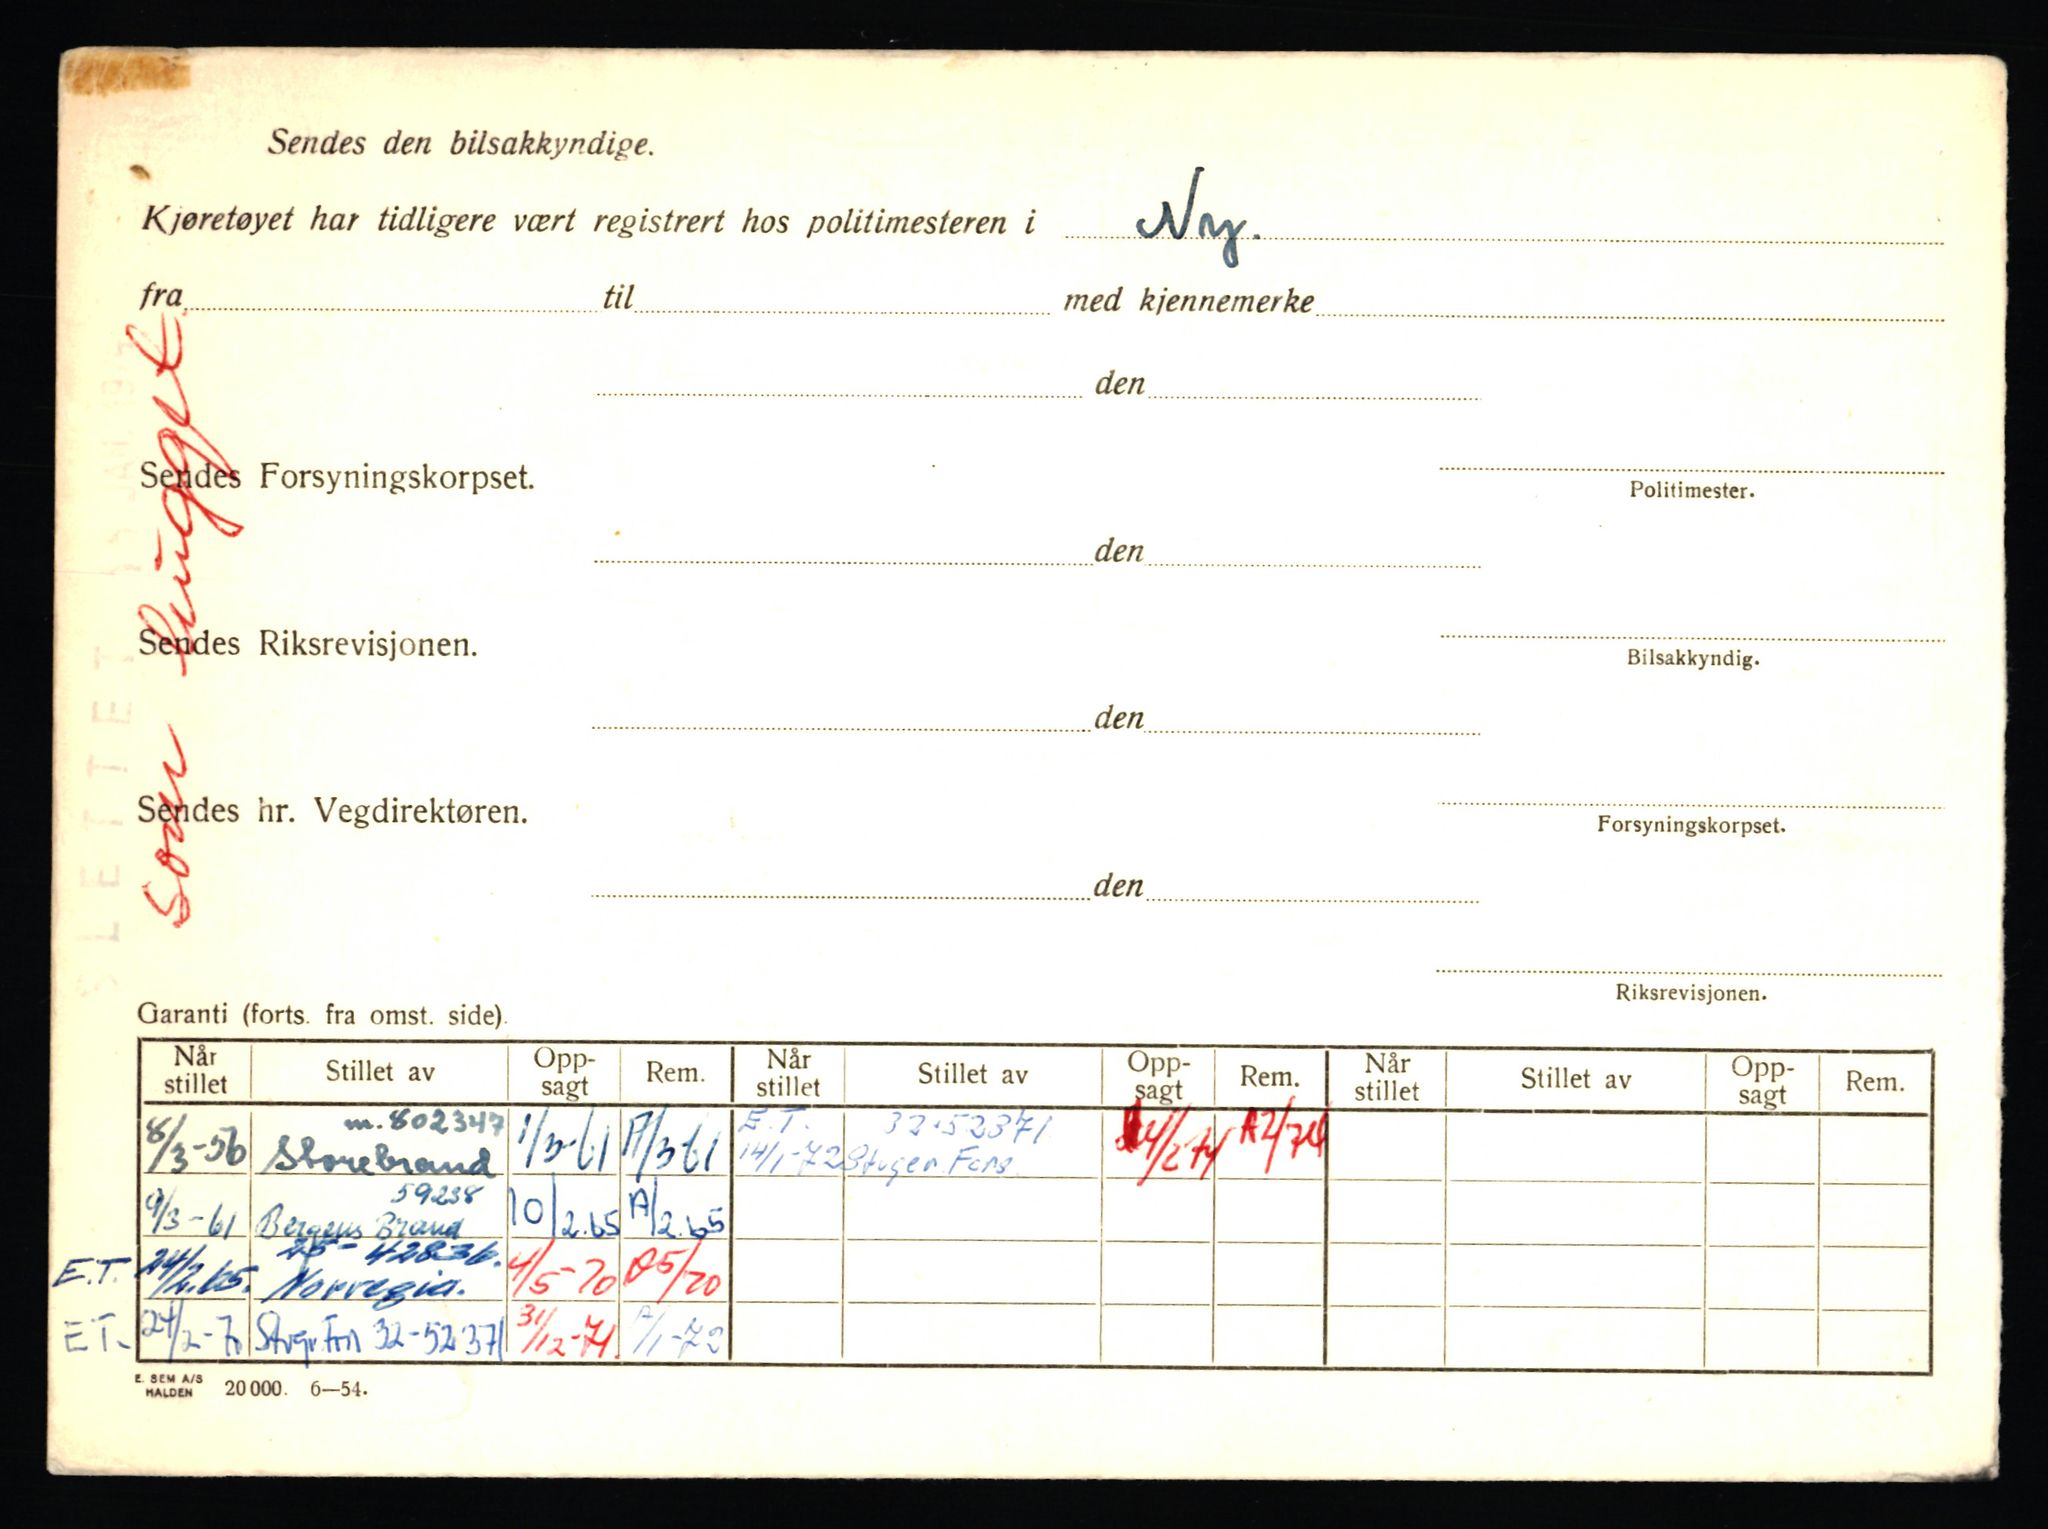 Sendes den bilsakkyndige.
Kjøretøyet har tidligere vært registrert hos politimesteren i Ny.
fra til med kjennemerke
den
Sendes Forsyningskorpset.
Politimester.
den
Sendes Riksrevisjonen.
Bilsakkyndig.
den
Sendes hr. Vegdirektøren.
Forsyningskorpset.
den
Riksrevisjonen.
som hugget
SLETTET
Garanti (forts. fra omst. side).
Når stillet Stillet av Opp- sagt Rem. Når stillet Stillet av Opp- sagt Rem. Når stillet Stillet av Opp- sagt Rem.
8/3-56 m. 802347 Storebrand 1/3-61 A/3 61 E.T. 14/1-72 32-52371 1/2 74 A2/74
9/3-61 59238 Bergens Brand 10/2.65 A/2.65
E.T. 24/2.65. 42836. Norvegia. 4/5-70 A5/70
E.T. 24/2-70 32-52371 31/12-71 A/1-72
E. SEM A/S
HALDEN 20 000. 6—54.